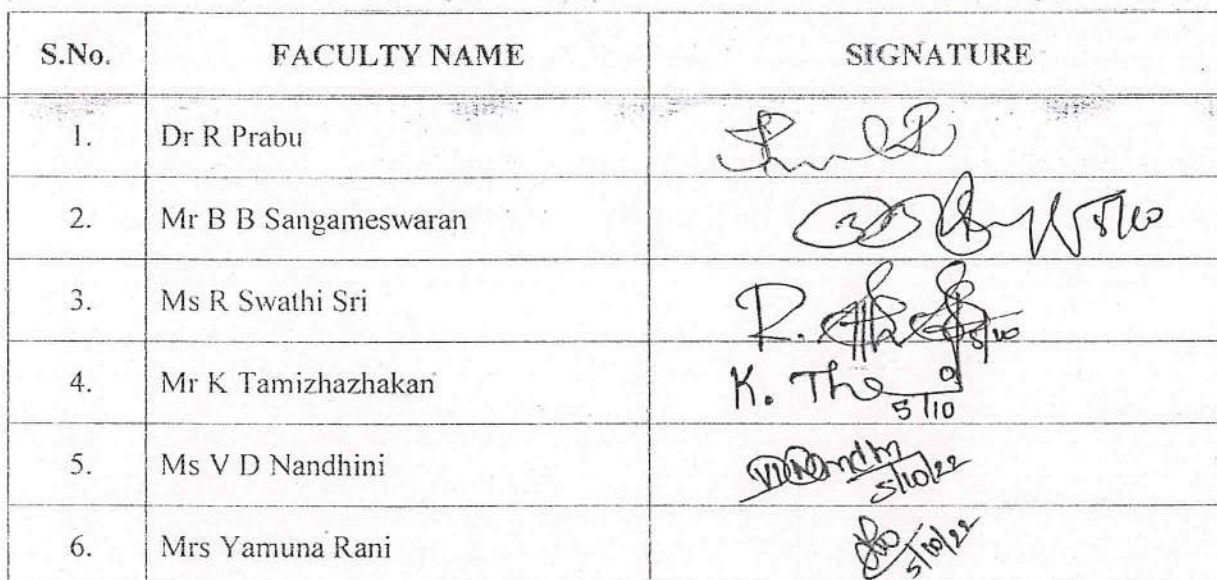 S.No. FACULTY NAME SIGNATURE
1. Dr R Prabu
2. Mr B B Sangameswaran 5/10
3. Ms R Swathi Sri R. 5/10
4. Mr K Tamizhazhakan K. The
5/10
5. Ms V D Nandhini
5/10/22
6. Mrs Yamuna Rani 5/10/22